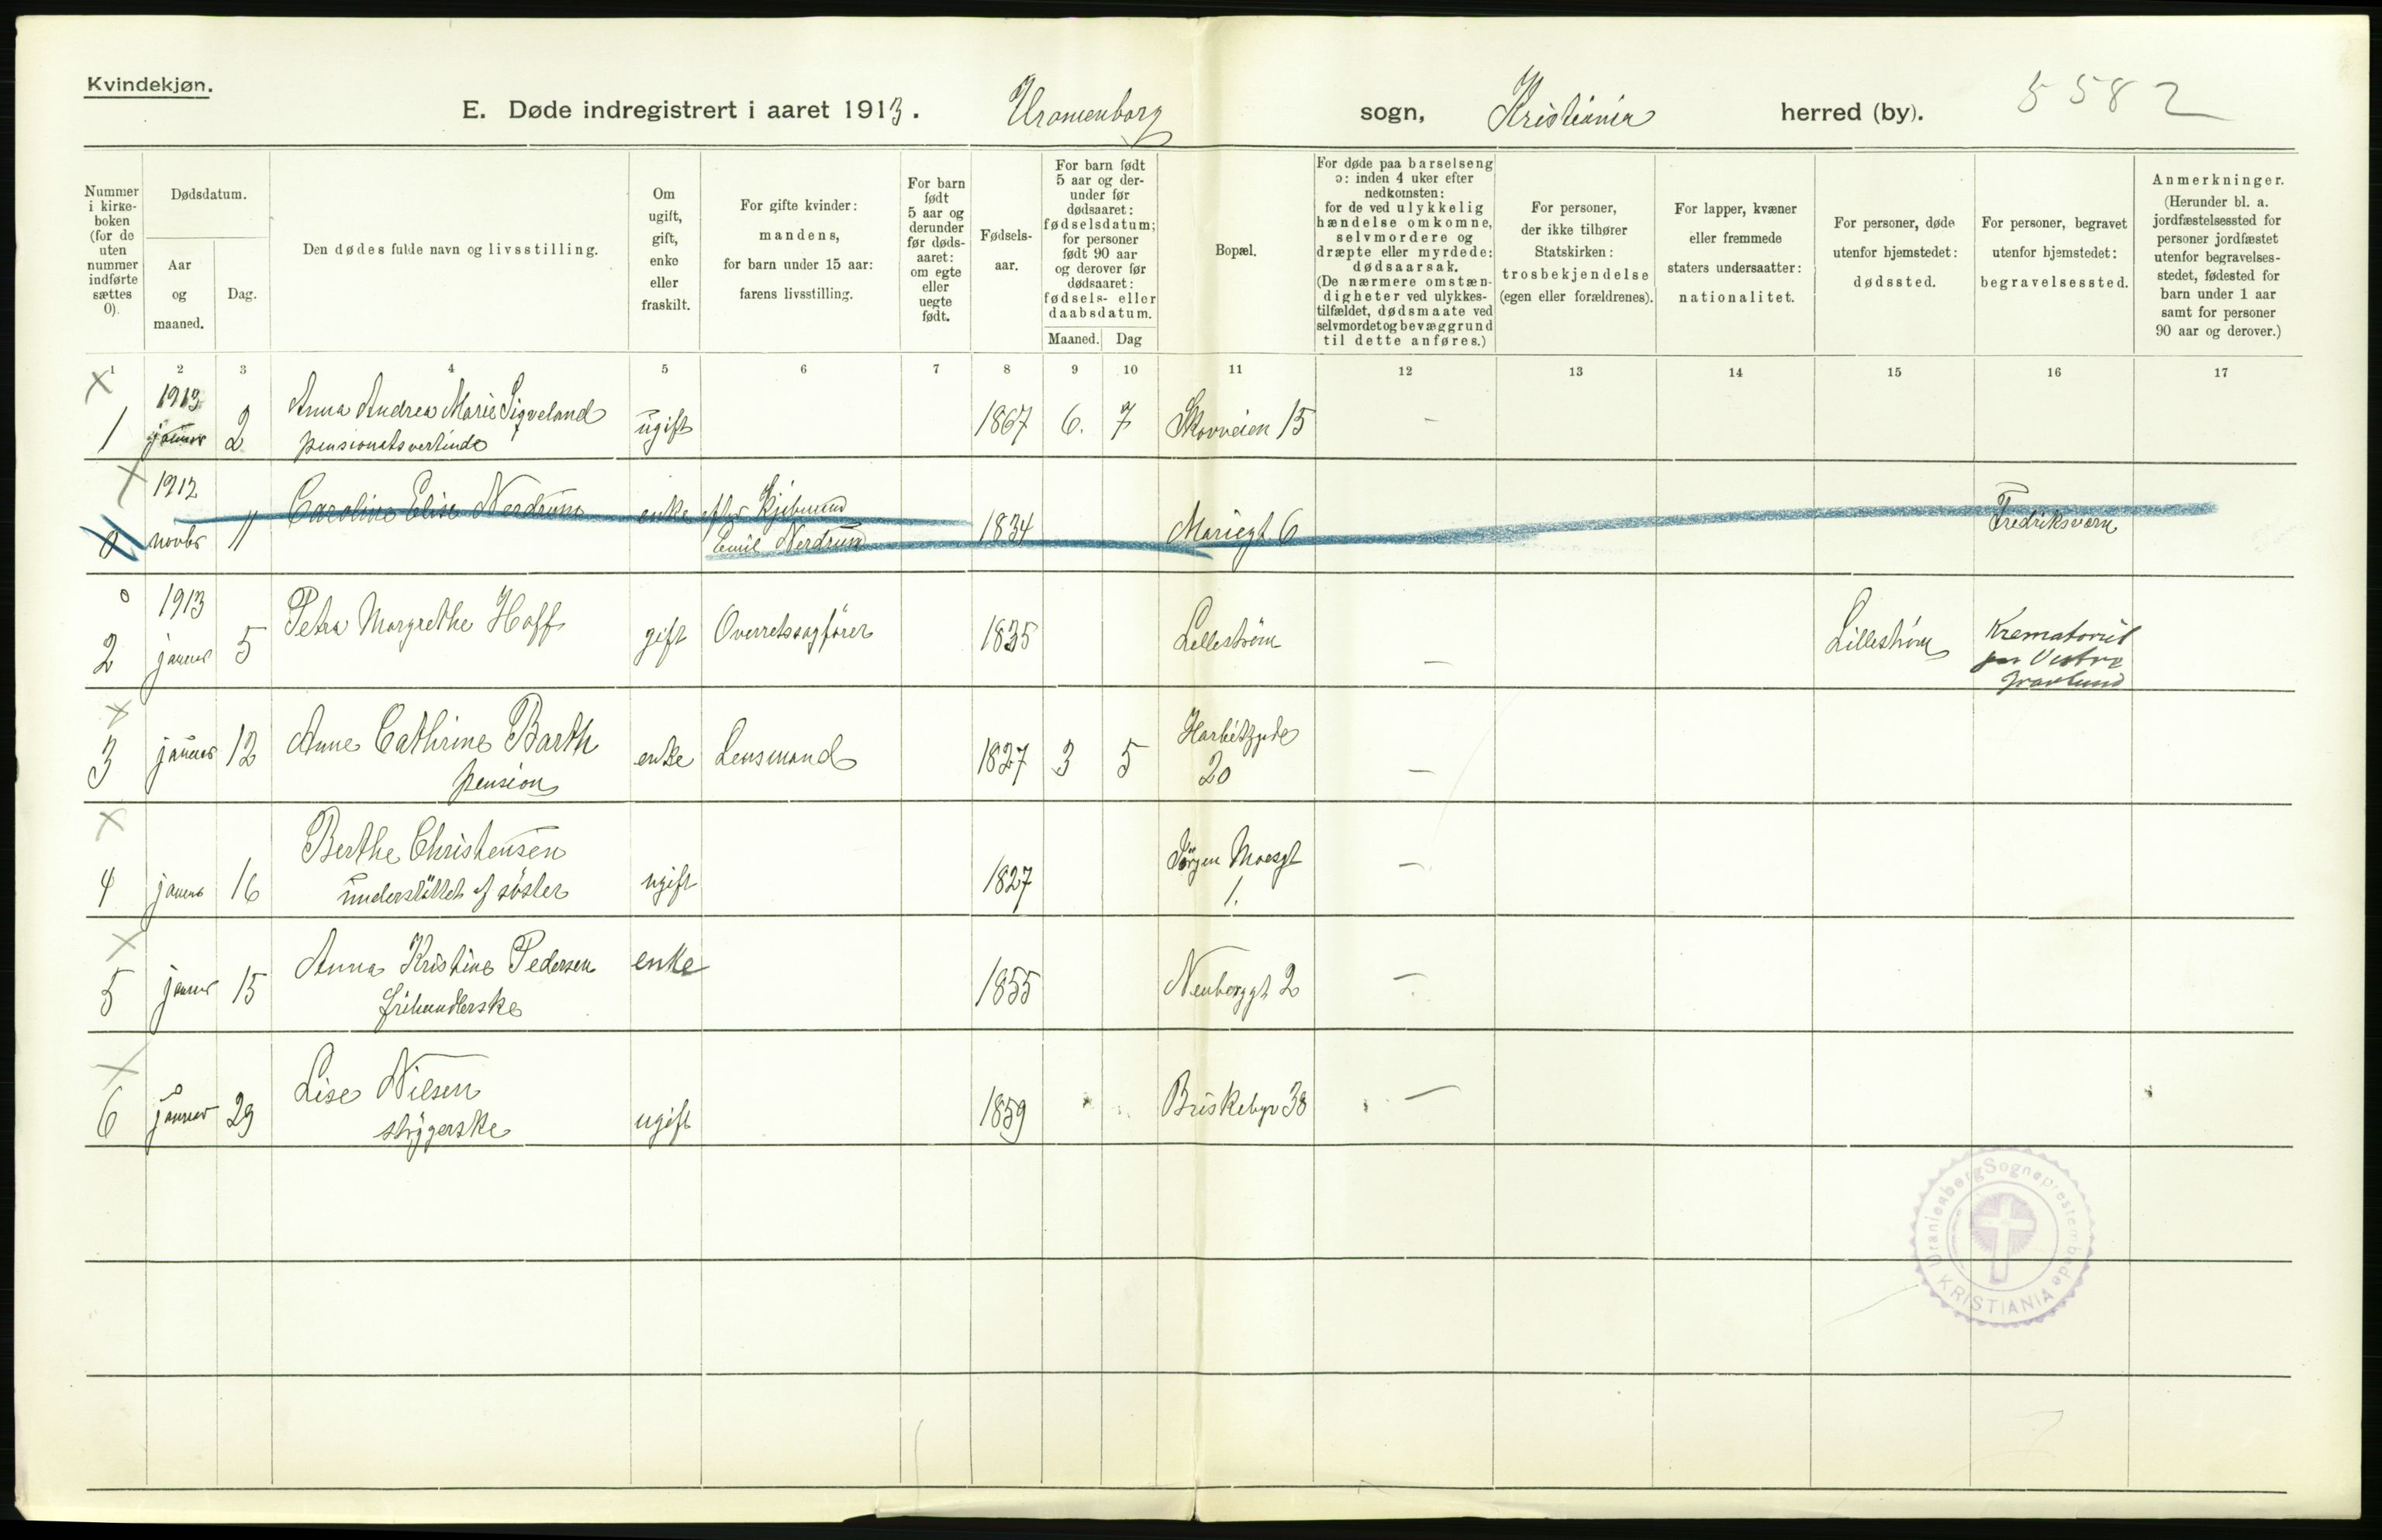 Kvindekjøn.
E. Døde indregistrert i aaret 1913. Uranienborg sogn, Kristiania herred (by). 5582
Nummer i kirke- boken (for de uten nummer indførte sættes 0).
Dødsdatum.
Aar og maaned.
Dag.
Den dødes fulde navn og livsstilling.
Om ugift, gift, enke eller fraskilt.
For gifte kvinder: mandens, for barn under 15 aar: farens livsstilling.
For barn født 5 aar og derunder før døds- aaret: om egte eller uegte født.
Fødsels- aar.
For barn født 5 aar og der- under før dødsaaret: fødselsdatum; for personer født 90 aar og derover før dødsaaret: fødsels- eller daabsdatum.
Maaned. Dag
Bopæl.
For døde paa barselseng ɔ: inden 4 uker efter nedkomsten: for de ved ulykkelig hændelse omkomne, selvmordere og dræpte eller myrdede: dødsaarsak. (De nærmere omstæn- digheter ved ulykkes- tilfældet, dødsmaate ved selvmordet og bevæggrund til dette anføres.)
For personer, der ikke tilhører Statskirken: trosbekjendelse (egen eller forældrenes).
For lapper, kvæner eller fremmede staters undersaatter: nationalitet.
For personer, døde utenfor hjemstedet: dødssted.
For personer, begravet utenfor hjemstedet: begravelsessted.
Anmerkninger. (Herunder bl. a. jordfæstelsessted for personer jordfæstet utenfor begravelses- stedet, fødested for barn under 1 aar samt for personer 90 aar og derover.)
1 2 3 4 5 6 7 8 9 10 11 12 13 14 15 16 17
× 1913
1 januar 2 Anna Andrea Marie Sigveland ugift 1867 6. 7 Skovveien 15 —
pensionatsvertinde
× 1912
0 novbr 11 Caroline Elise Nerdrum enke efter Kjøbmand 1834 Mariegt 6 Fredriksværn
Emil Nerdrum
0 1913
2 januar 5 Petra Margrethe Hoff gift Overretssagfører 1835 Lillestrøm — Lillestrøm Krematoriet
Vestre
Gravlund
×
3 januar 12 Anne Cathrine Barth enke Lensmand 1827 3 5 Harbitzgade —
pension 20
×
4 januar 16 Berthe Christensen ugift 1827 Jørgen Moesgt —
understøttet af søster 1.
×
5 januar 15 Anna Kristine Pedersen enke 1855 Neuberggt 2 —
frihandlerske
×
6 januar 29 Lise Nilsen ugift 1859 Briskebyv 38 —
strygerske
Uranienborg Sogneprestembede
KRISTIANIA